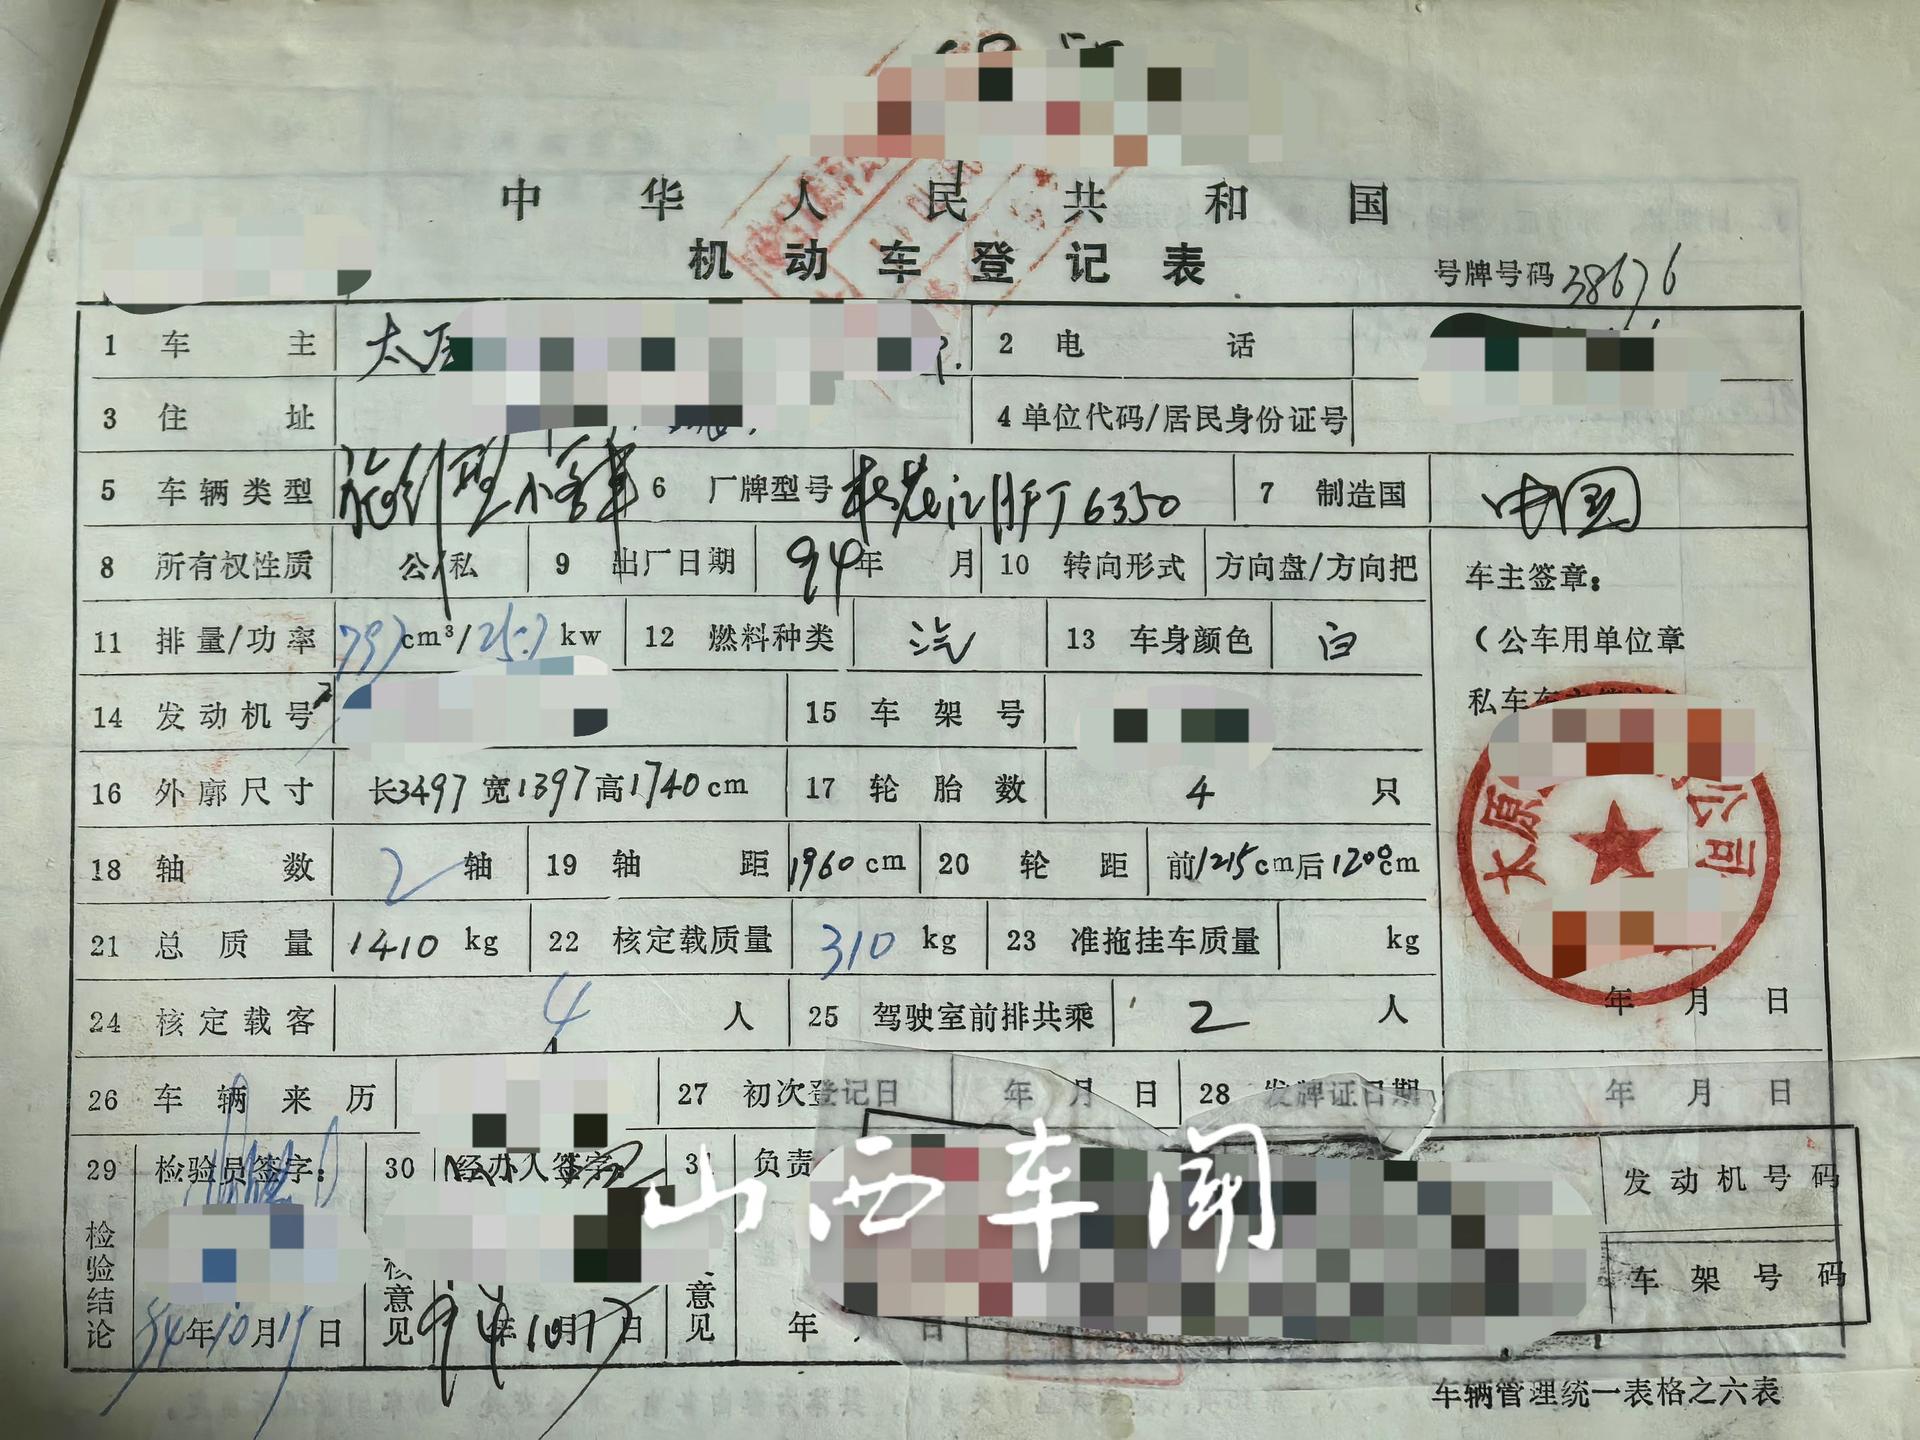 中华人民共和国
机动车登记表
号牌号码 38676
1 车主 太原 2 电话
3 住址 4 单位代码/居民身份证号
5 车辆类型 旅行型小客车 6 厂牌型号 松花江HFJ6350 7 制造国 中国
8 所有权性质 公/私 9 出厂日期 94年 月 10 转向形式 方向盘/方向把
车主签章:
11 排量/功率 797cm³/25.7kw 12 燃料种类 汽 13 车身颜色 白
(公车用单位章
私车车主
14 发动机号 15 车架号
16 外廓尺寸 长3497宽1397高1740cm 17 轮胎数 4只
太原 公司
18 轴数 2轴 19 轴距 1960cm 20 轮距 前1215cm后1200cm
21 总质量 1410kg 22 核定载质量 310kg 23 准拖挂车质量 kg
年 月 日
24 核定载客 4人 25 驾驶室前排共乘 2人
26 车辆来历 27 初次登记日 年 月 日 28 发牌证日期 年 月 日
29 检验员签字: 30 经办人签字: 31 负责
山西车闻
发动机号码
检验结论
车架号码
核意见
意见
94年10月17日 94年10月17日 年 日
车辆管理统一表格之六表